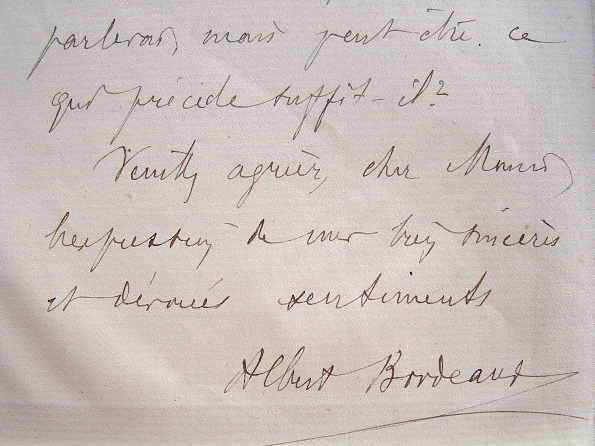 parlerai, mais peut être ce
qui précède suffit-il?
Veuillez agréer, cher Monsieur,
l'expression de mes bien sincères
et dévoués sentiments
Albert Bordeaux